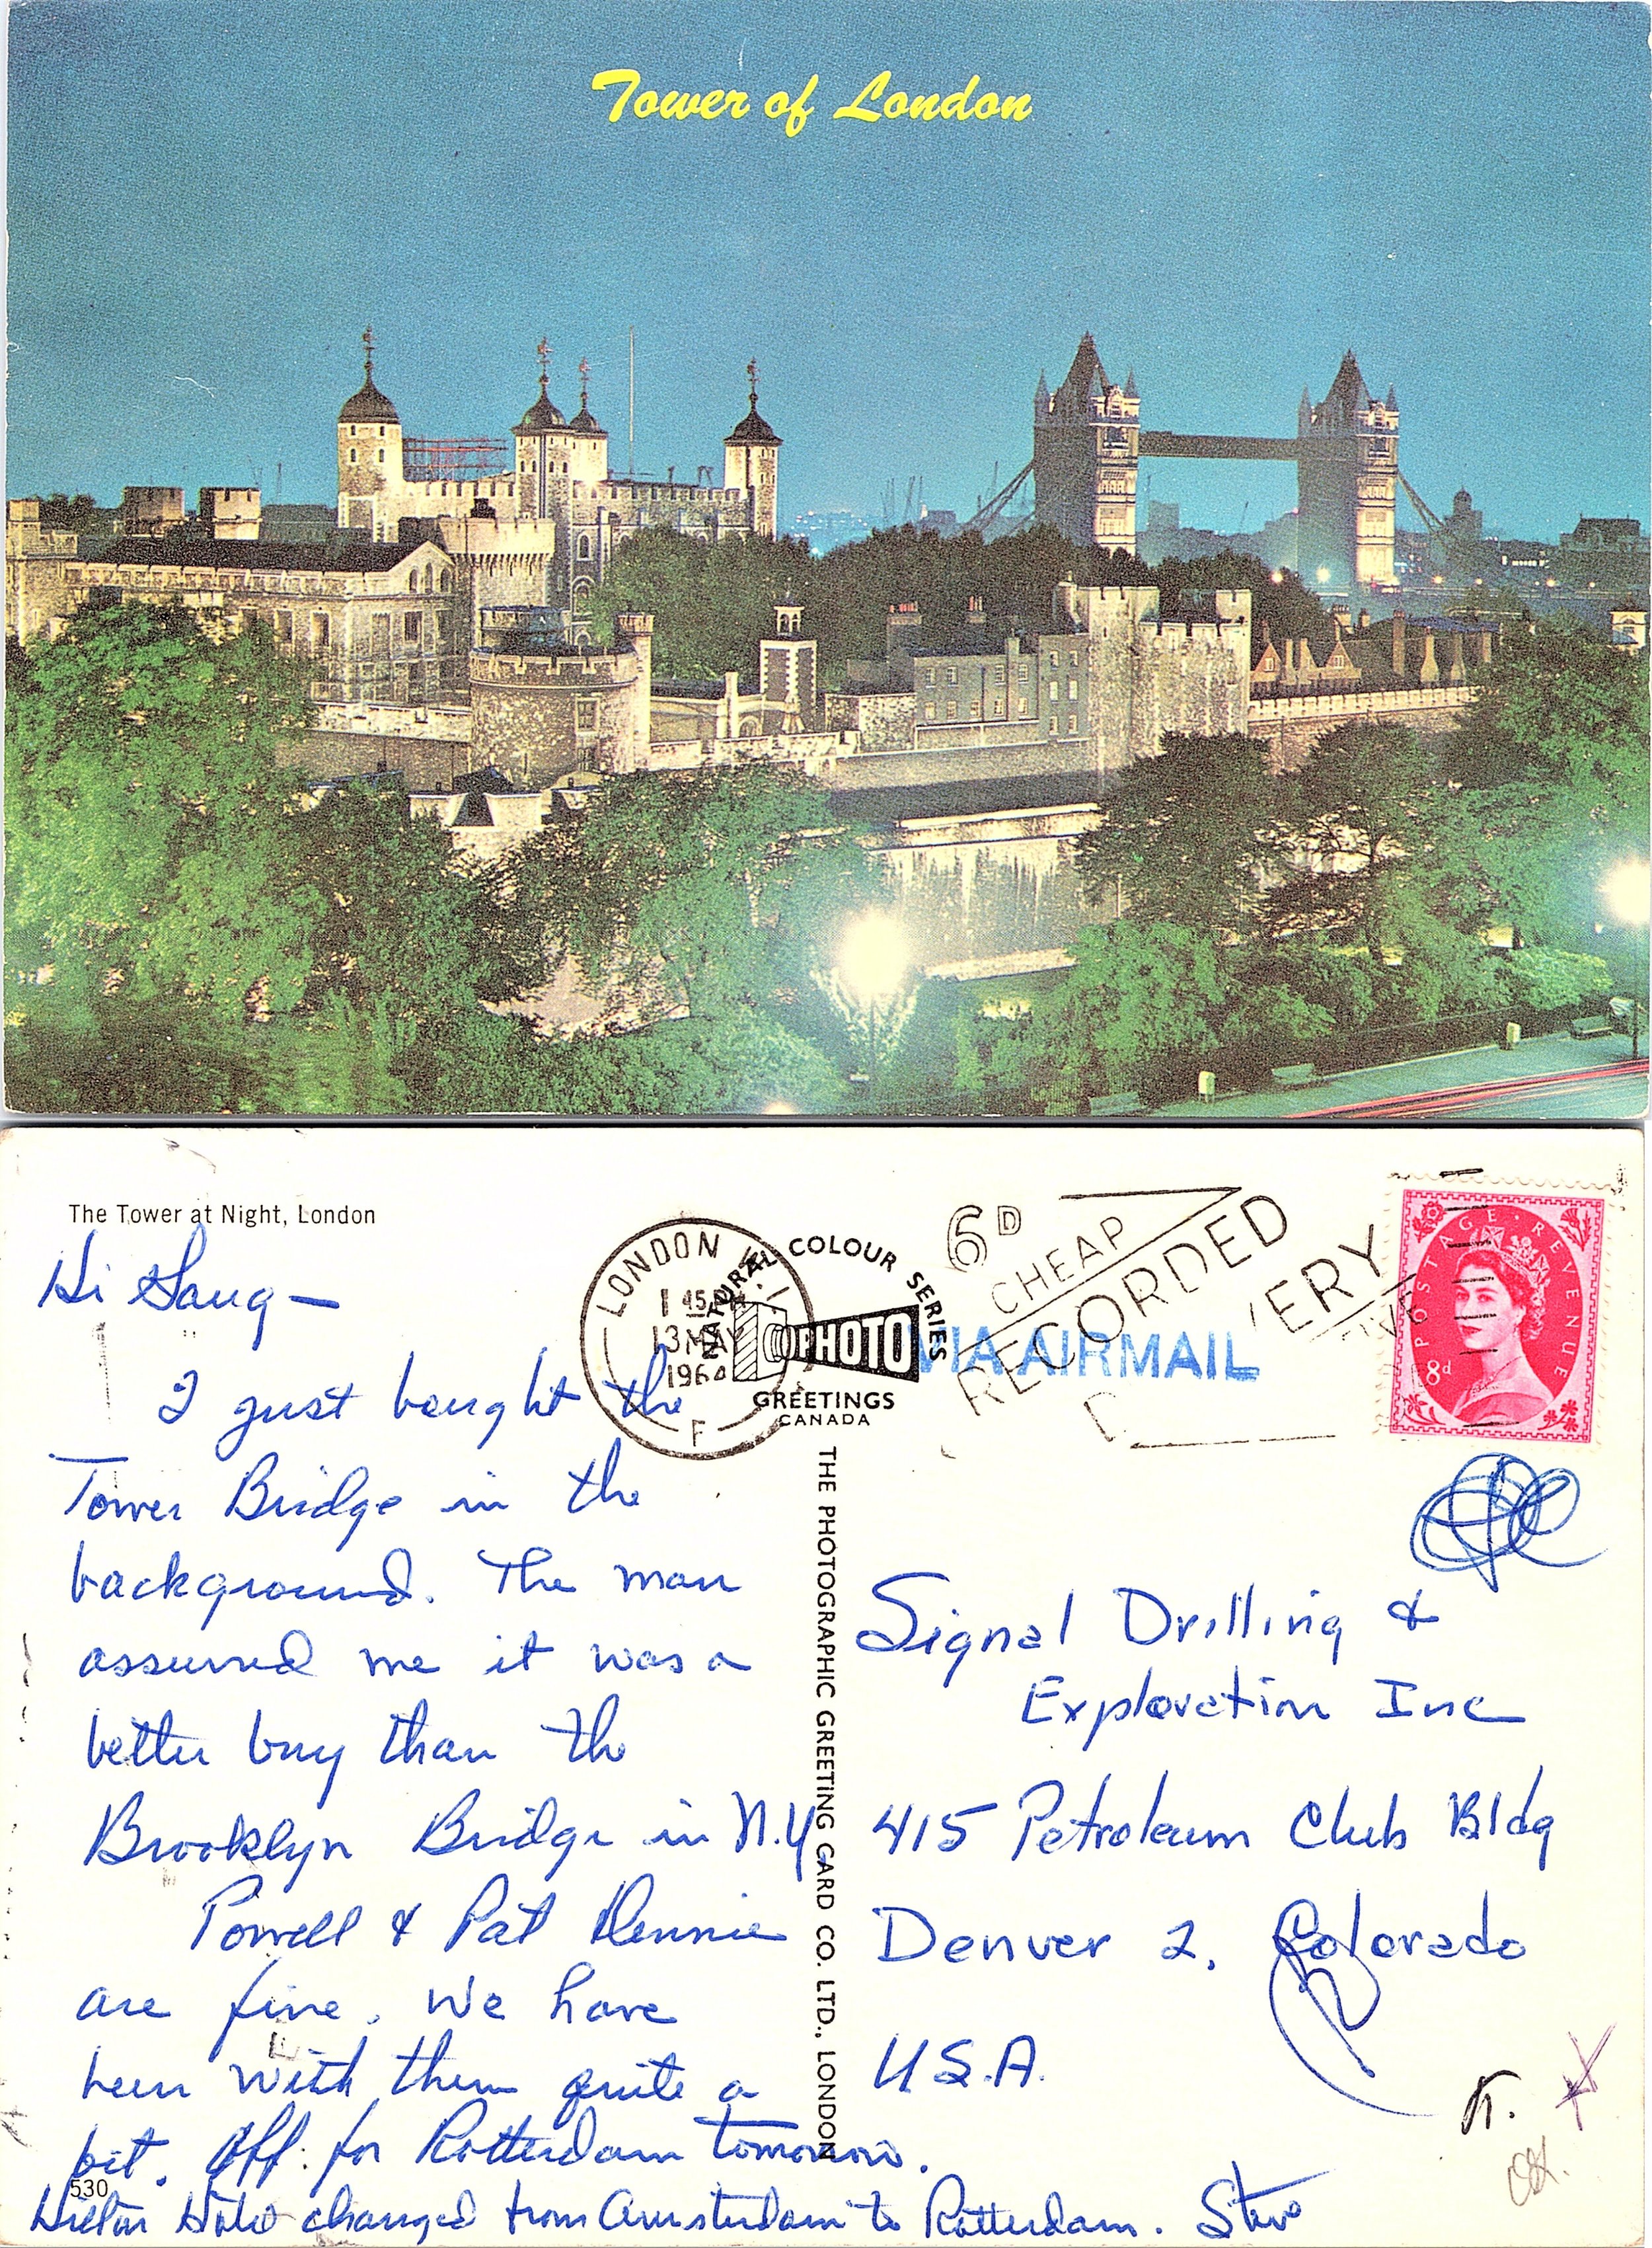 Tower of London
The Tower at Night, London
Hi Gang —
I just bought the
Tower Bridge in the
background. The man
assured me it was a
better buy than the
Brooklyn Bridge in N.Y.
Powell & Pat Dennie
are fine. We have
been with them quite a
bit. Off for Rotterdam tomorrow.
530
Hilton Hotel changed from Amsterdam to Rotterdam. Steve
LONDON W.1
1 45
13 MAY
1964
F
NATURAL COLOUR SERIES
PHOTO
GREETINGS
CANADA
THE PHOTOGRAPHIC GREETING CARD CO. LTD., LONDON
6D
CHEAP
RECORDED
VIA AIRMAIL
POSTAGE REVENUE
8d
Signal Drilling &
Exploration Inc
415 Petroleum Club Bldg
Denver 2, Colorado
U.S.A.
K.